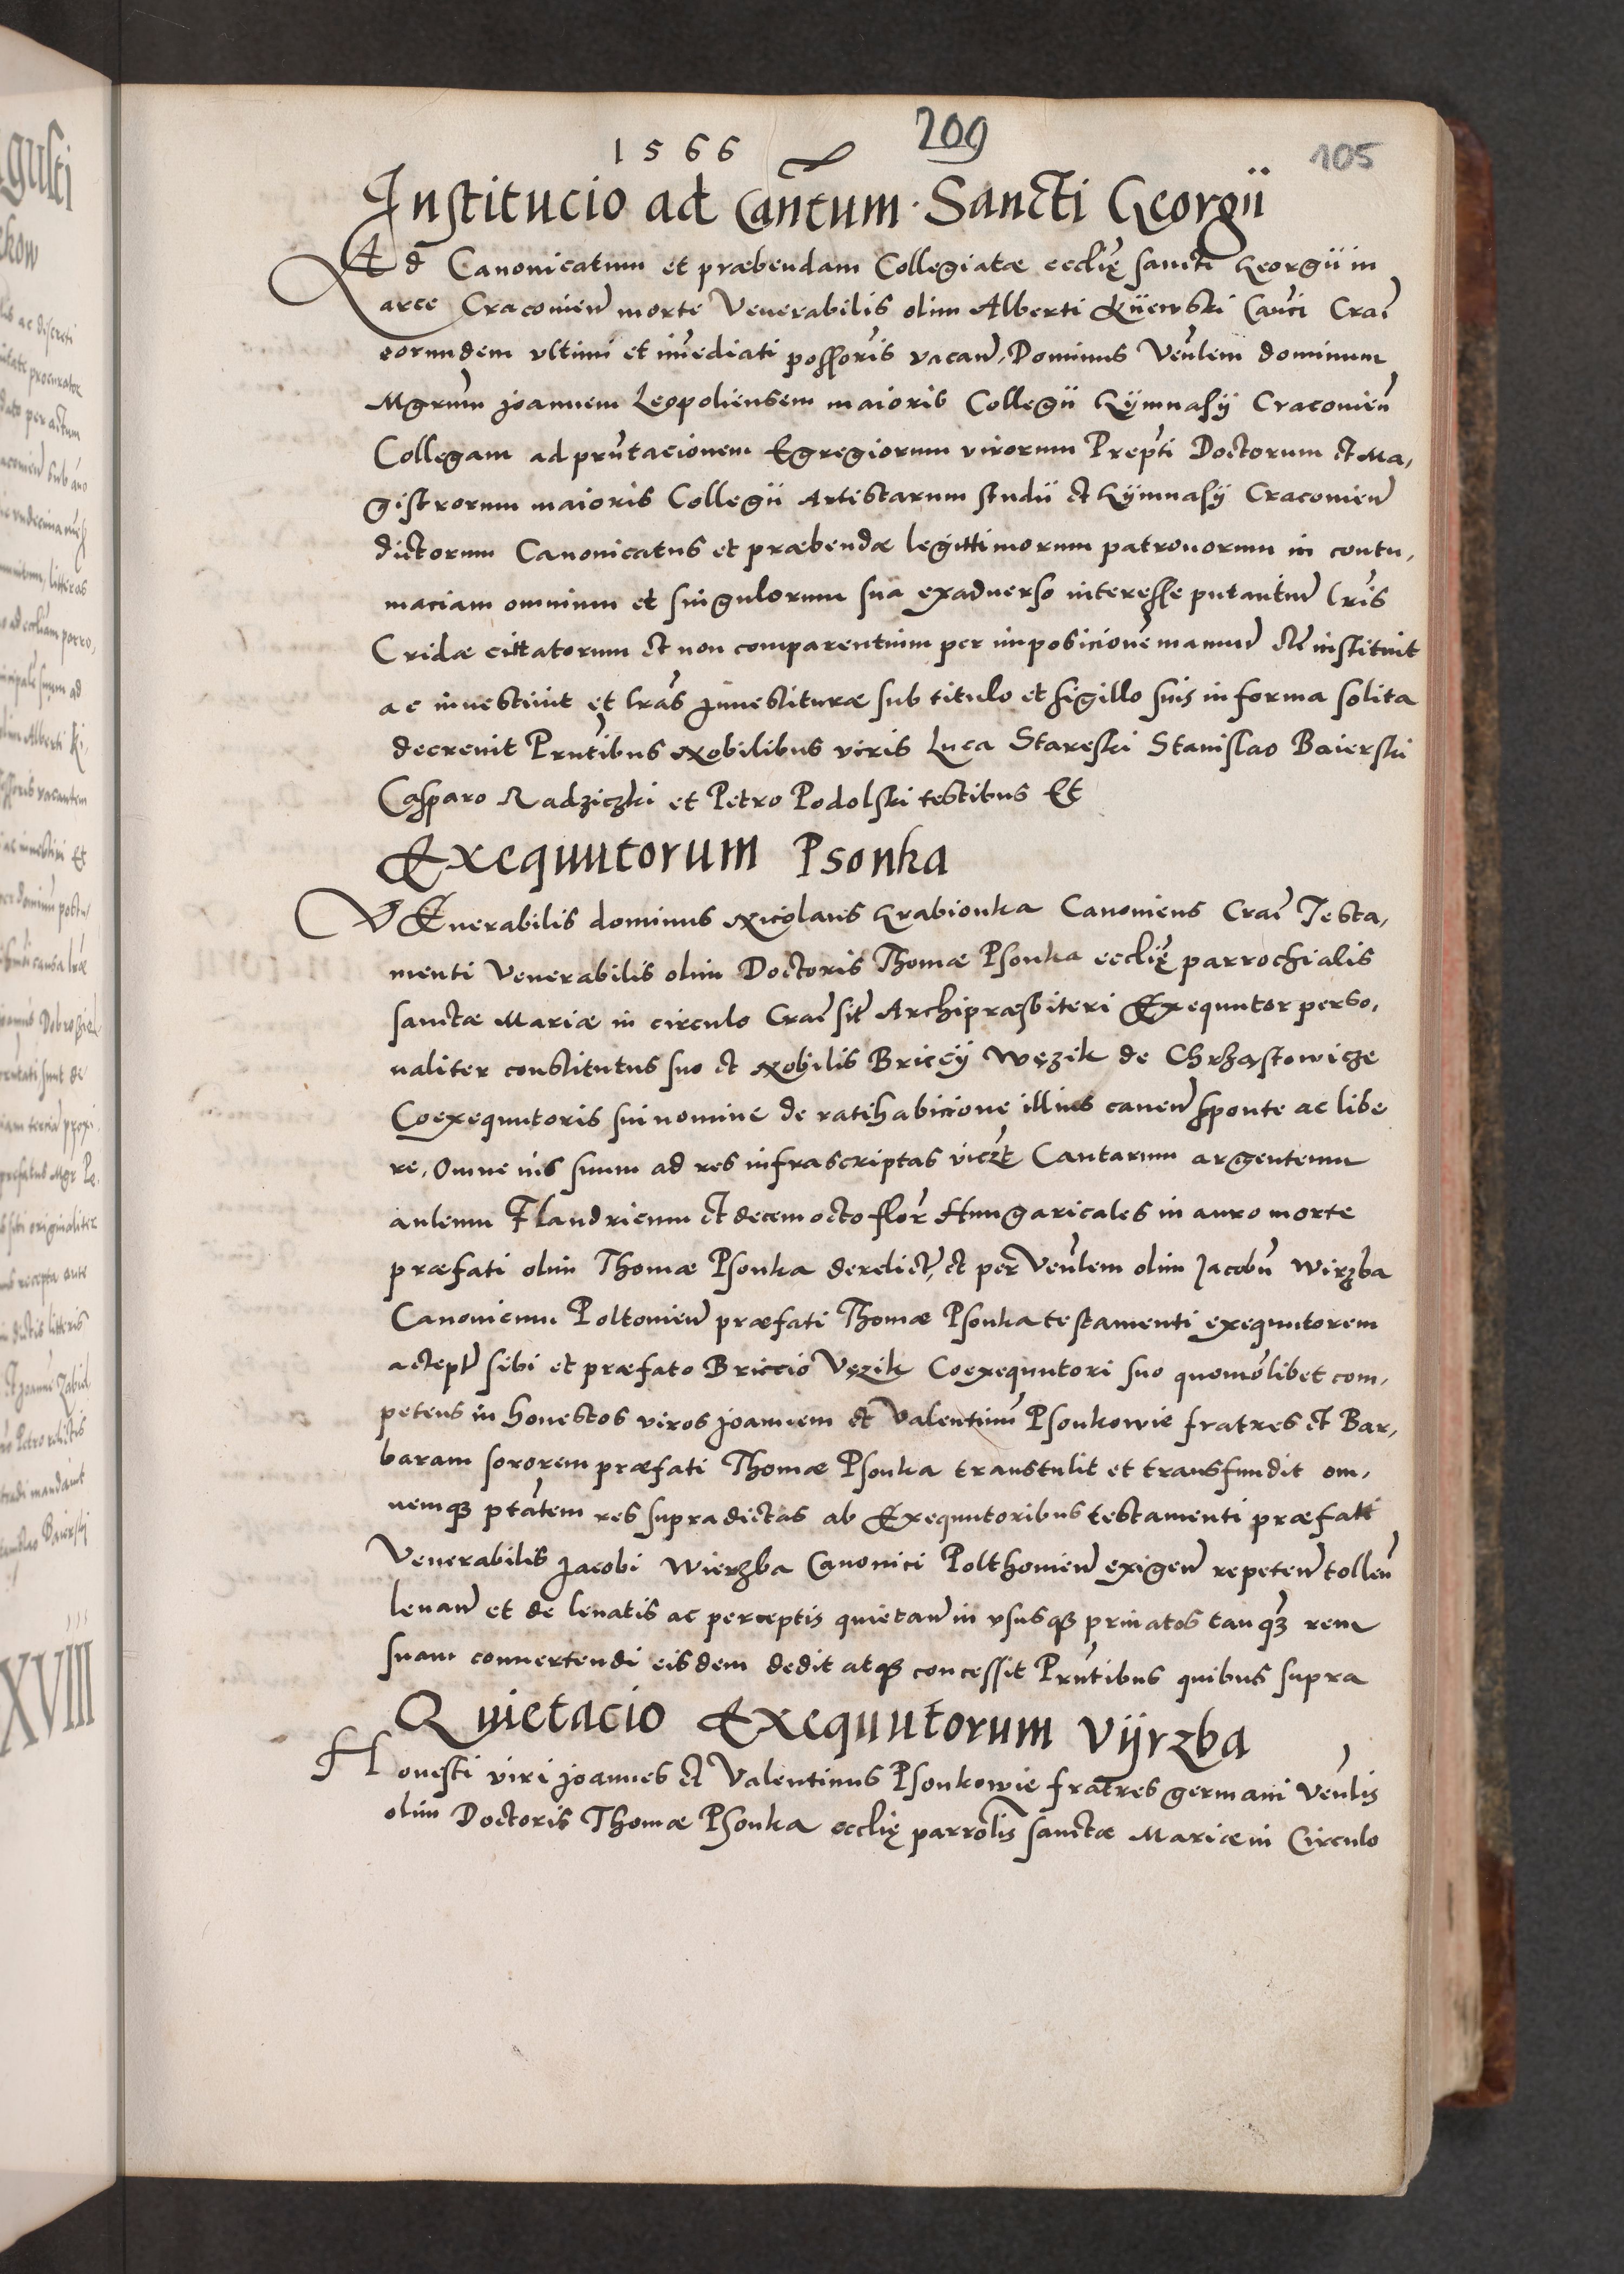 1566
209
105
Institucio ad Cantum Sancti Georgii
Ad Canonicatum et præbendam Collegiatæ ecclię sancti Georgii in
arce Cracovien morte Venerabilis olim Alberti Kiiewski Canci Crac
eorundem vltimi et imediati possoris vacan, Dominus Venlem dominum
Mgrum Joannem Leopoliensem maioris Collegii Gÿmnasÿ Cracovien
Collegam ad prntacionem Egregiorum virorum Prepti Doctorum et Ma,
gistrorum maioris Collegii Artistarum studii et Gÿmnasÿ Cracovien
dictorum Canonicatus et præbendæ legittimorum patronorum in contu,
maciam omnium et singulorum sua exaduerso interesse putantiu lris
Cridæ cittatorum et non comparentium per imposicione manuu etc instituit
ac inuestiuit et lras Inuestituræ sub titulo et sigillo suis in forma solita
decreuit Prntibus Nobilibus viris Luca Stareski Stanislao Baierski
Casparo Radziczki et Petro Podolski testibus Et
Exequutorum Psonka
VEnerabilis dominus Nicolaus Grabionka Canonicus Crac Testa,
menti Venerabilis olim Doctoris Thomæ Psonka ecclię parrochialis
sanctæ Mariæ in circulo Crac sit Archipræsbiteri Exequutor perso,
naliter constitutus suo et Nobilis Briccÿ Węzik de Chrząstowicze
Coexequutoris sui nomine de ratihabicione illius cauen sponte ac libe
re, Omne ius suum ad res infrascriptas viczt Cantarum argenteum
auleum Flandricum et decem octo flor Hungaricales in auro morte
præfati olim Thomæ Psonka derelict, et per Venlem olim Jacobu Wirzba
Canonicum Poltovien præfati Thomæ Psonka testamenti exequutorem
accept sibi et præfato Briccio Vęzik Coexequutori suo quomolibet com,
petens in honestos viros Joannem et Valentinu Psonkowie fratres et Bar,
baram sororem præfati Thomæ Psonka transtulit et transfundit om,
nemq3 ptatem res supradictas ab Exequutoribus testamenti præfati
Venerabilis Jacobi Wierzba Canonici Polthovien exigen repeten tollen
leuan et de leuatis ac perceptis quietan in vsusq3 priuatos tanq3 rem
suam conuertendi eisdem dedit atq3 concessit Prntibus quibus supra
Quietacio Exequutorum Vÿrzba
Honesti viri Joannes et Valentinus Psonkowie fratres germani Venlis
olim Doctoris Thomæ Psonka ecclię parrolis sanctæ Mariæ in Circulo